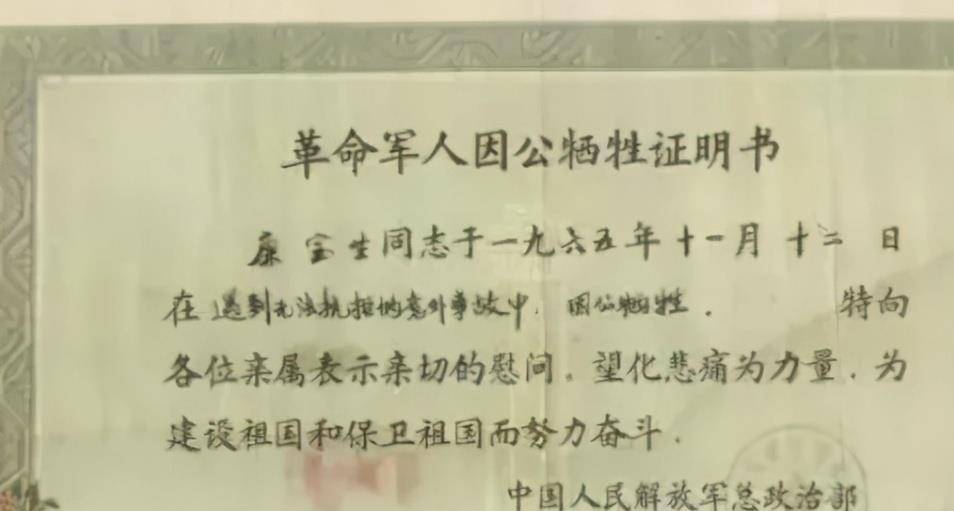 革命军人因公牺牲证明书
康宝生同志于一九六五年十一月十二日
在遇到无法抗拒的意外事故中，因公牺牲．特向
各位亲属表示亲切的慰问．望化悲痛为力量．为
建设祖国和保卫祖国而努力奋斗．
中国人民解放军总政治部